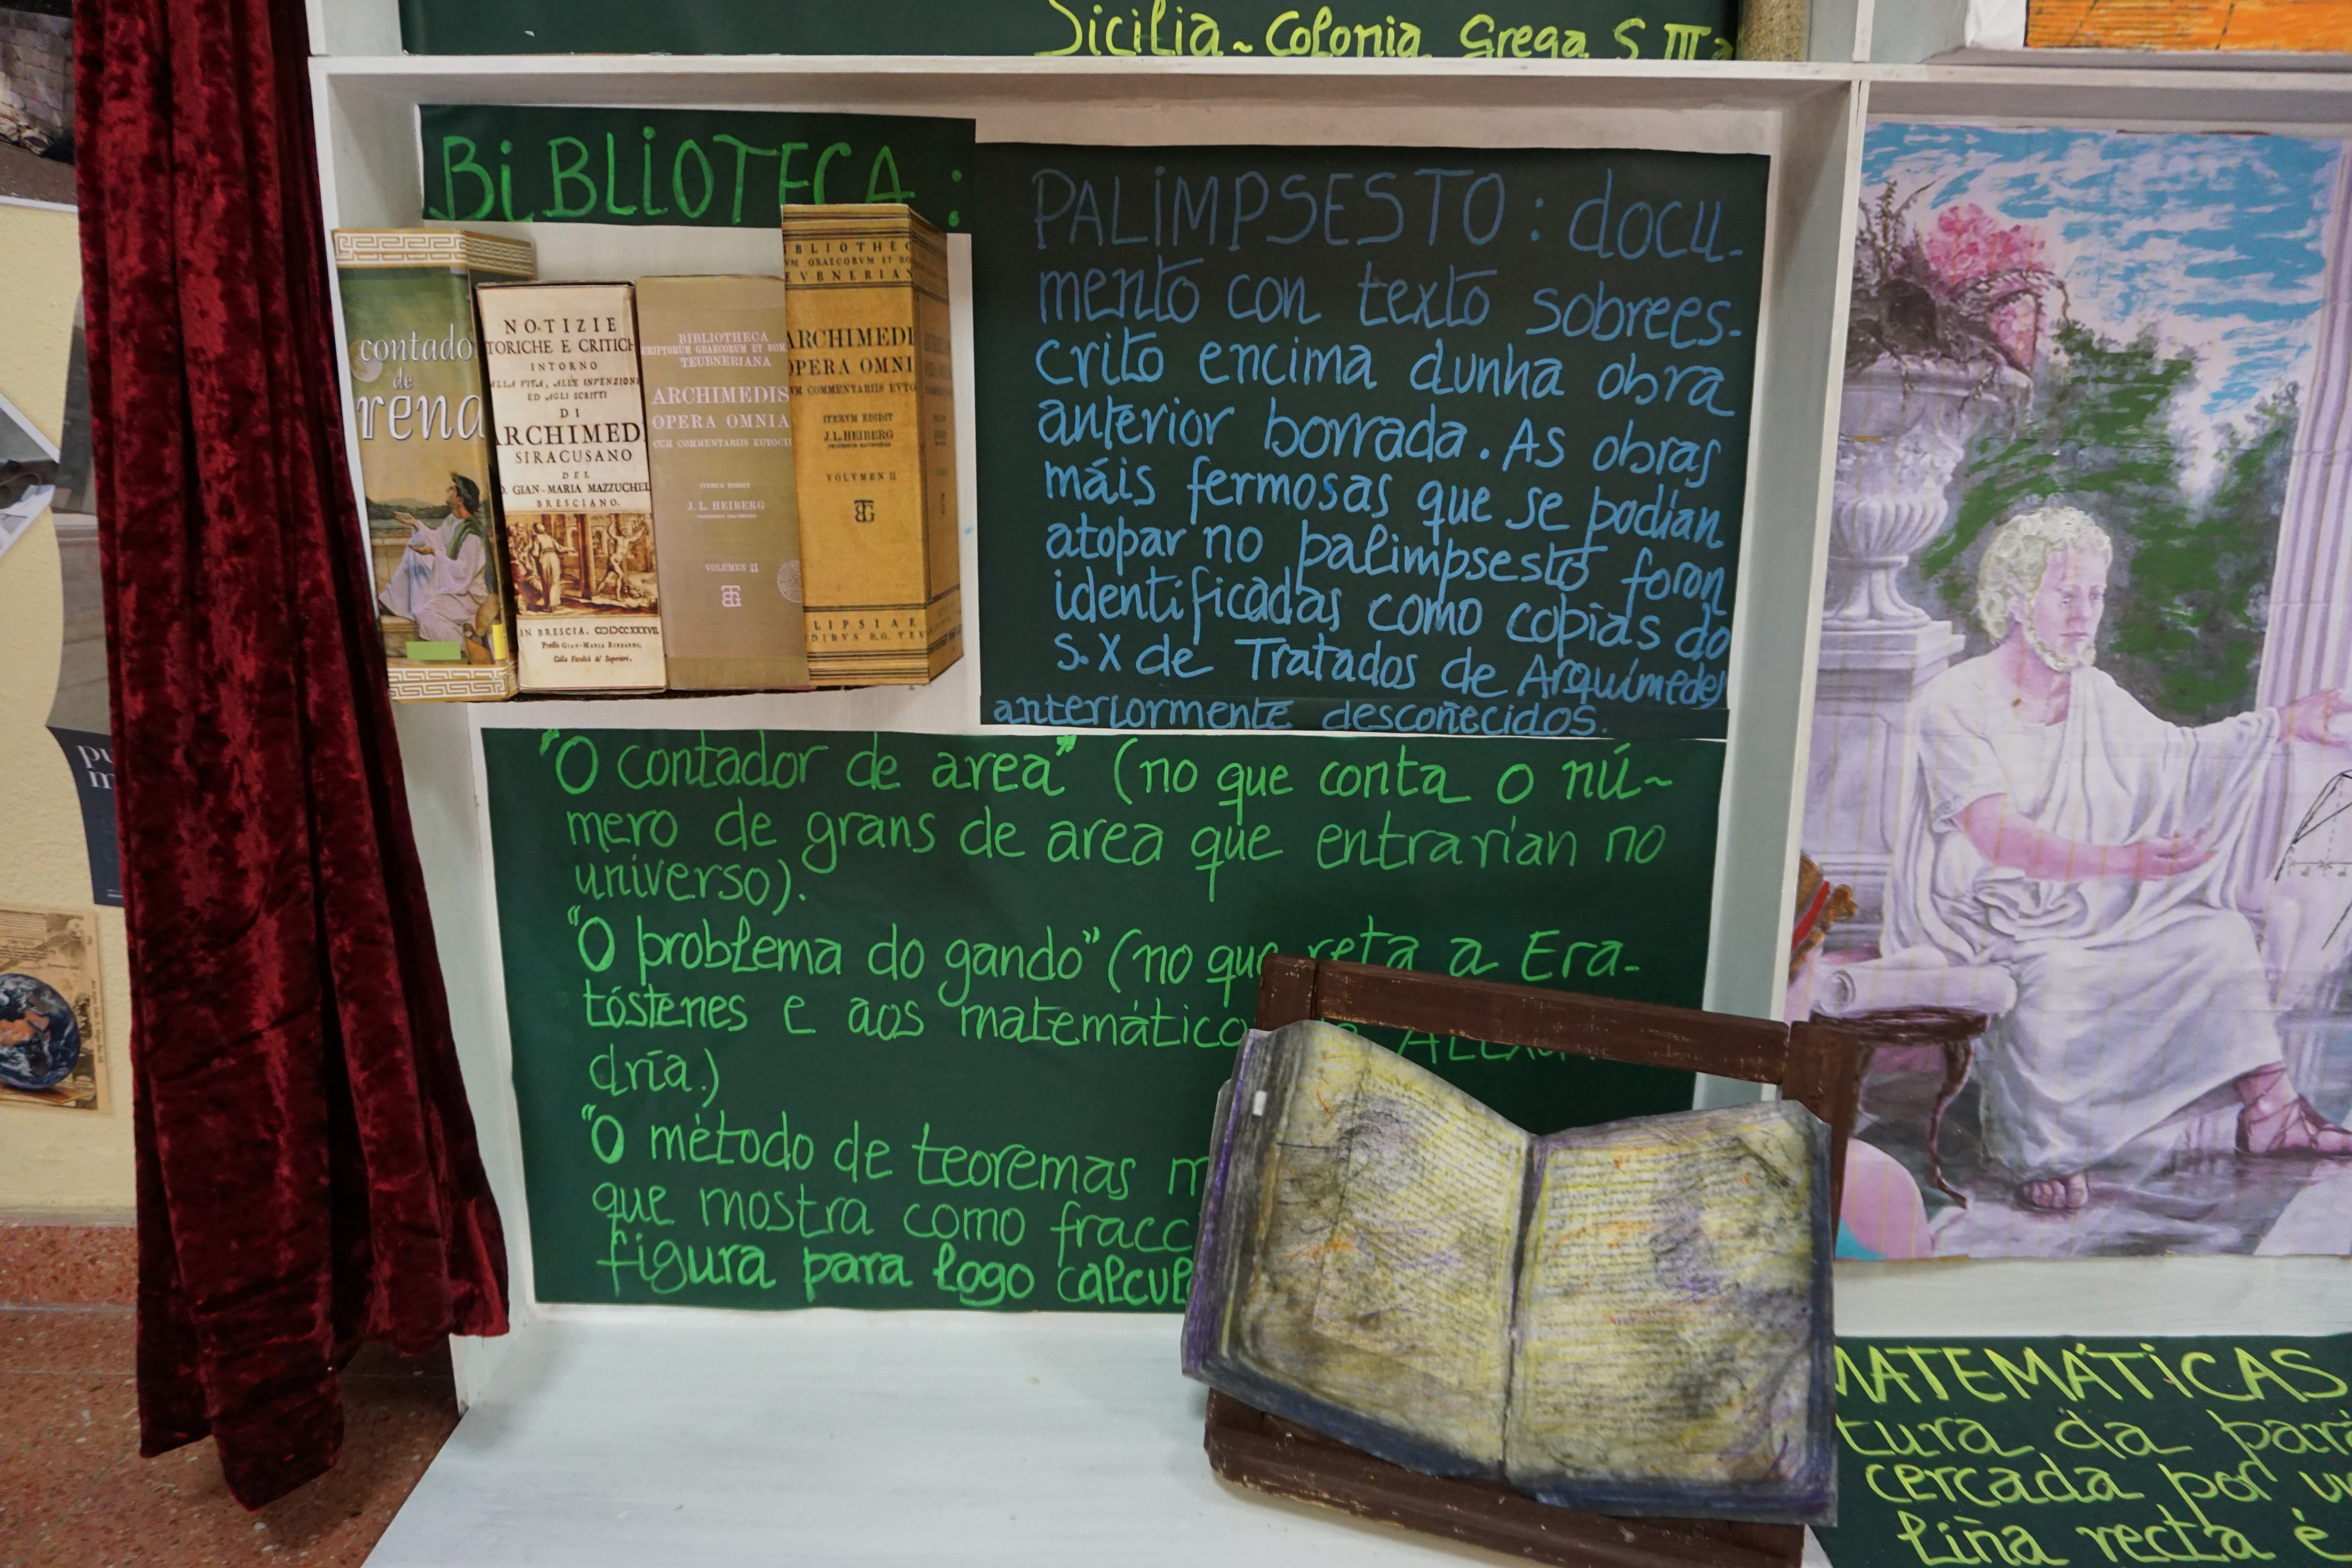 Sicilia~Colonia Grega S III a
BiBLIOTECA:
contado
de
rena
NOTIZIE
TORICHE E CRITICH
INTORNO
ALLA VITA, ALLE INVENZIONI
ED AGLI SCRITTI
DI
ARCHIMED
SIRACUSANO
DEL
GIAN-MARIA MAZZUCHEL
BRESCIANO.
IN BRESCIA,
Presso GIAN-MARIA RIZZARDI,
Colla Facoltà de' Superiori.
BIBLIOTHECA
CRIPTORUM GRAECORUM ET ROM
TEUBNERIANA
ARCHIMEDIS
OPERA OMNIA
CUM COMMENTARIIS EUTOCII
ITERUM EDIDIT
J. L. HEIBERG
VOLUMEN II
BLIOTHEC
VM GRAECORVM ET RO
EVBNERIAN
ARCHIMEDI
OPERA OMNI
VM COMMENTARIIS EVTO
ITERVM EDIDIT
J. L. HEIBERG
VOLVMEN II
LIPSIAE
DIBVS B.G. TEV
PALIMPSESTO: docu-
mento con texto sobrees-
crito encima dunha obra
anterior borrada. As obras
máis fermosas que se podían
atopar no palimpsesto foron
identificadas como copias do
s. X de Tratados de Arquímedes
anteriormente descoñecidos.
"O contador de area" (no que conta o nú~
mero de grans de area que entrarían no
universo).
"O problema do gando" (no que reta a Era-
tóstenes e aos matemático
dría.)
"O método de teoremas m
que mostra como fracc
figura para logo calcul
MATEMÁTICAS
tura da par
cercada por u
liña recta é